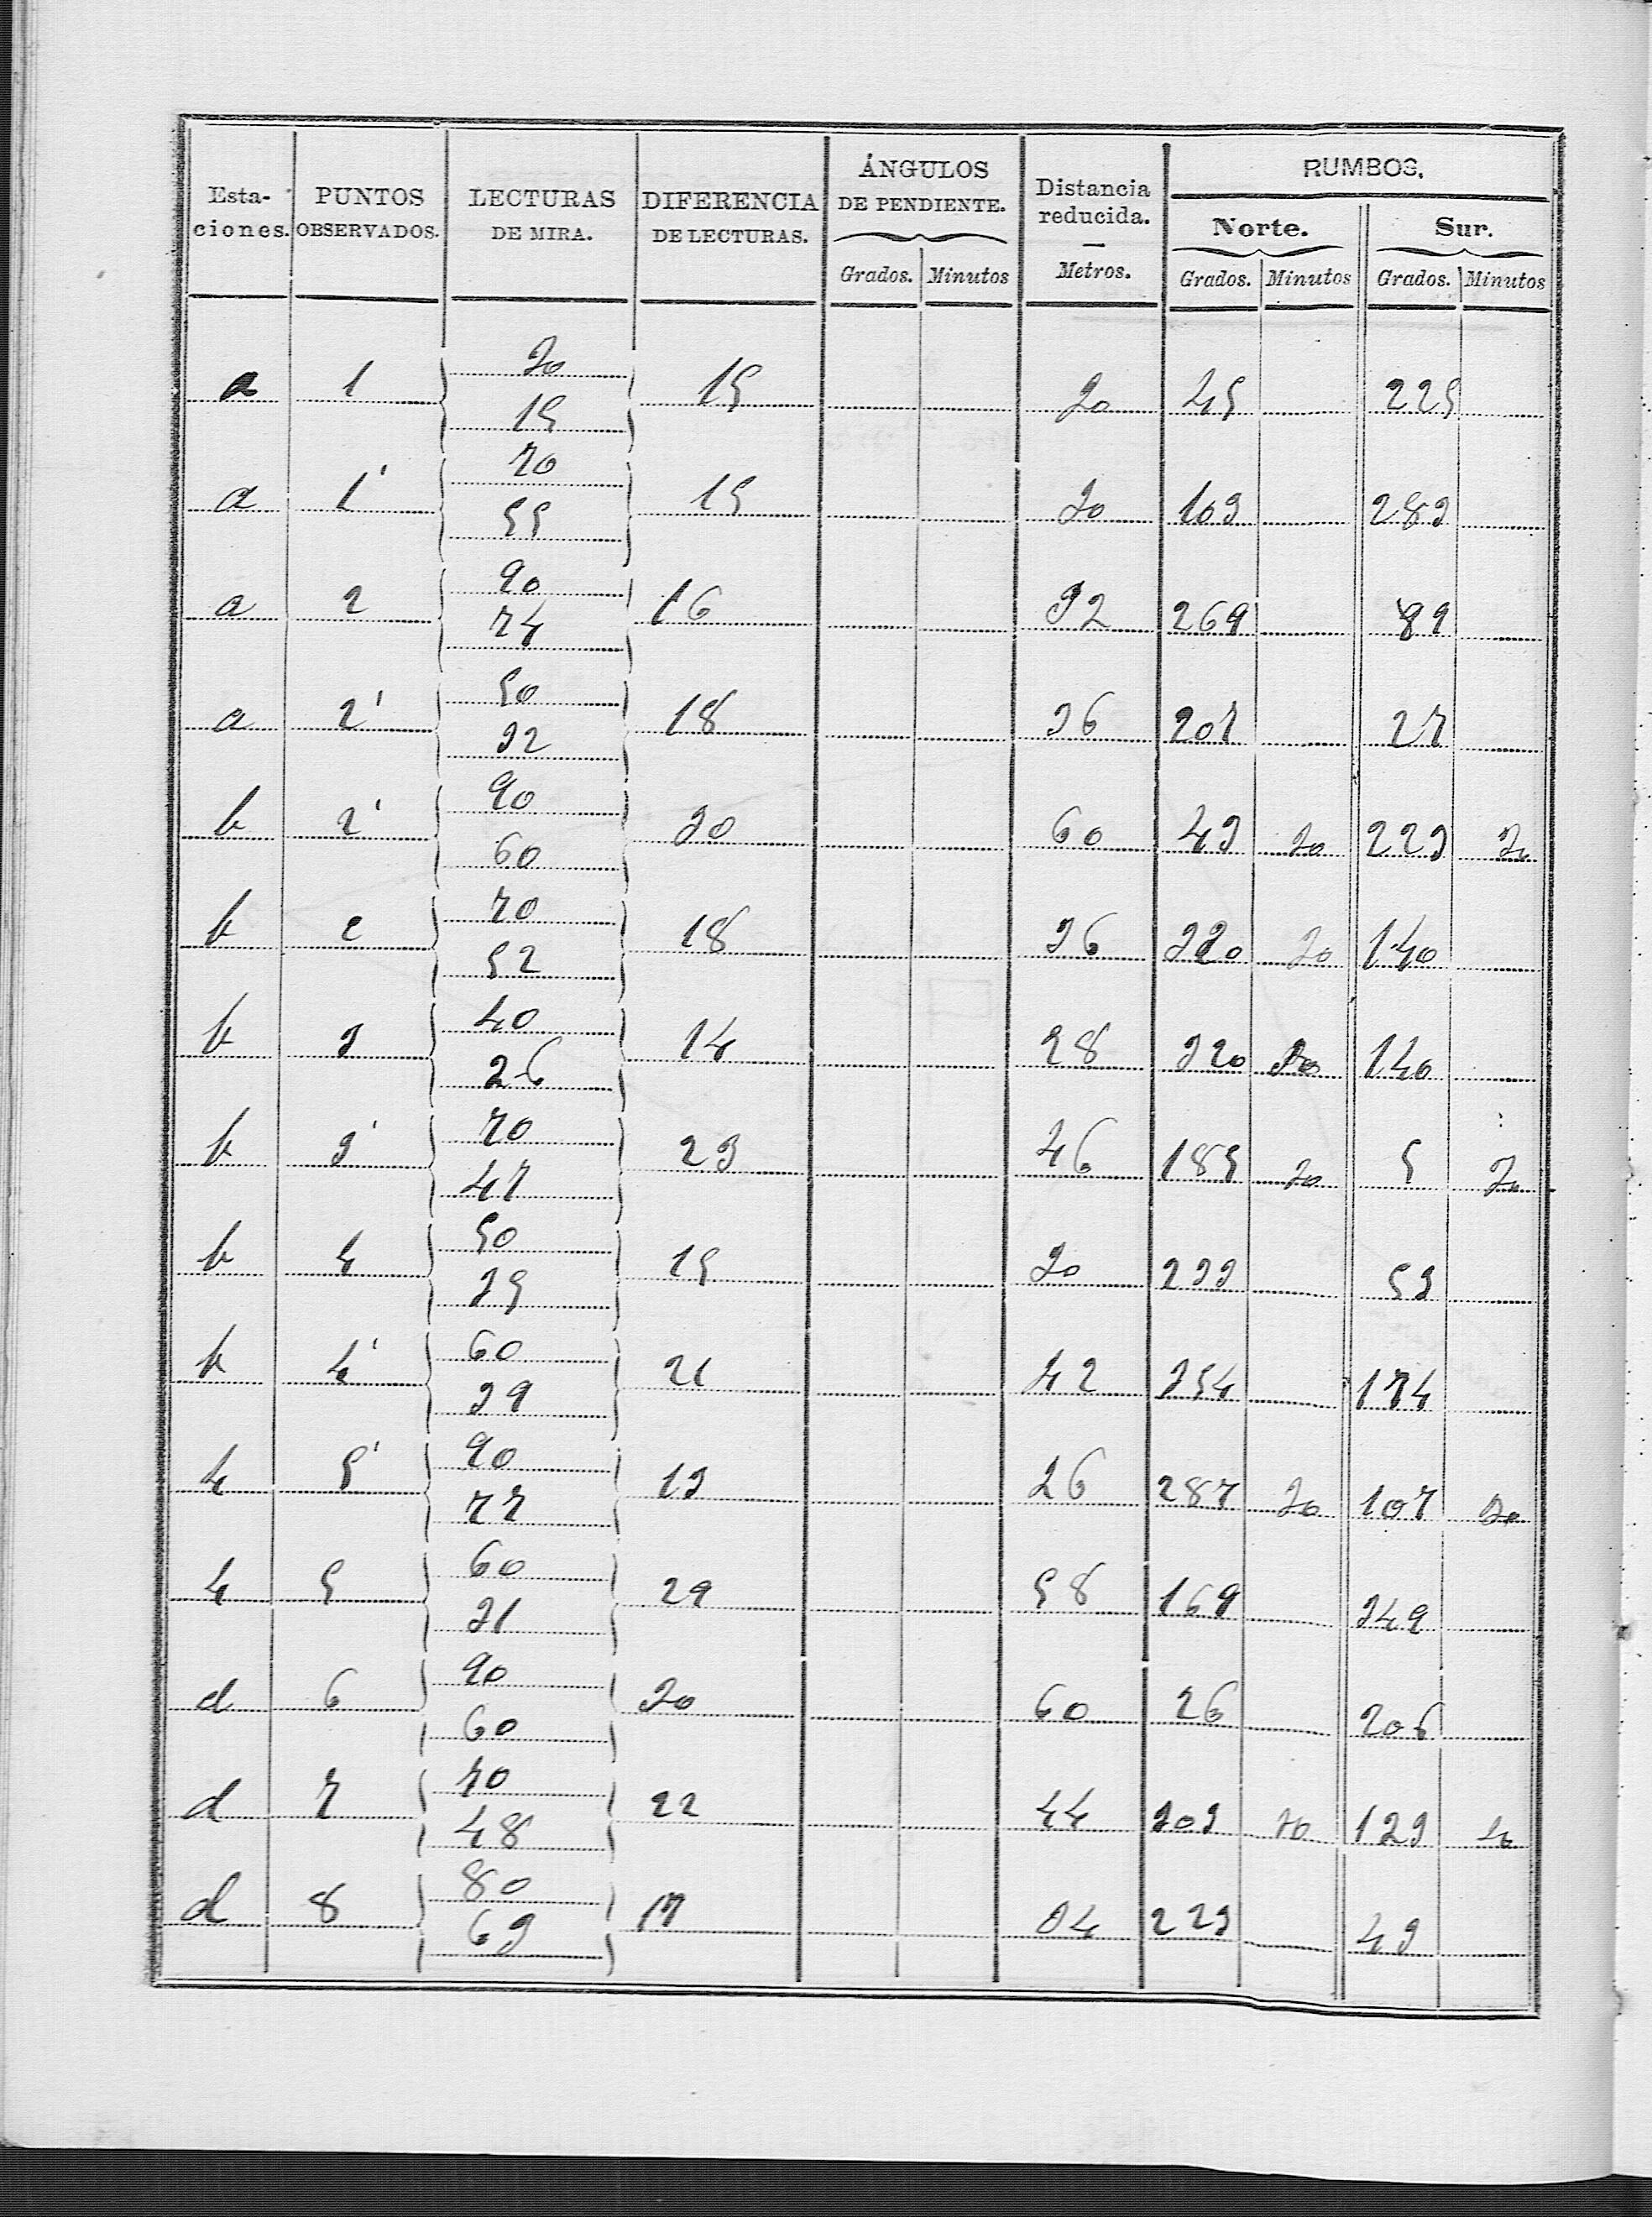 Esta-
ciones.
PUNTOS
OBSERVADOS.
LECTURAS
DE MIRA.
DIFERENCIA
DE LECTURAS.
ÁNGULOS
DE PENDIENTE.
Grados. Minutos
Distancia
reducida.
Metros.
RUMBOS.
Norte. Sur.
Grados. Minutos Grados. Minutos
a 1 30 15 15 30 45 225
a 1' 70 55 15 30 103 283
a 2 90 74 16 32 269 89
a 2' 50 32 18 36 207 27
b 2' 90 60 30 60 43 30 223 30
b c 70 52 18 36 320 30 140
b 3 40 26 14 28 320 30 140
b 3' 70 47 23 46 185 30 5 30
b 4 50 35 15 30 233 53
b 4' 60 39 21 42 354 174
4 5' 90 77 13 26 287 30 107 30
4 5 60 31 29 58 169 349
d 6 90 60 30 60 26 206
d 7 70 48 22 44 303 30 123 30
d 8 80 63 17 34 223 43